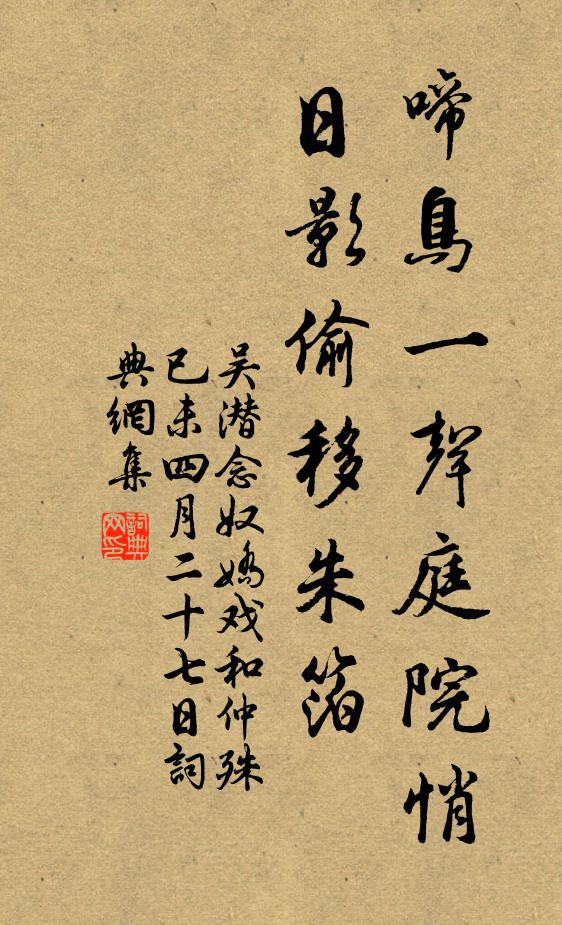 啼鳥一聲庭院悄
日影偷移朱箔
吴潜念奴嬌戏和仲殊
已未四月二十七日詞
典網集
詞典
网印